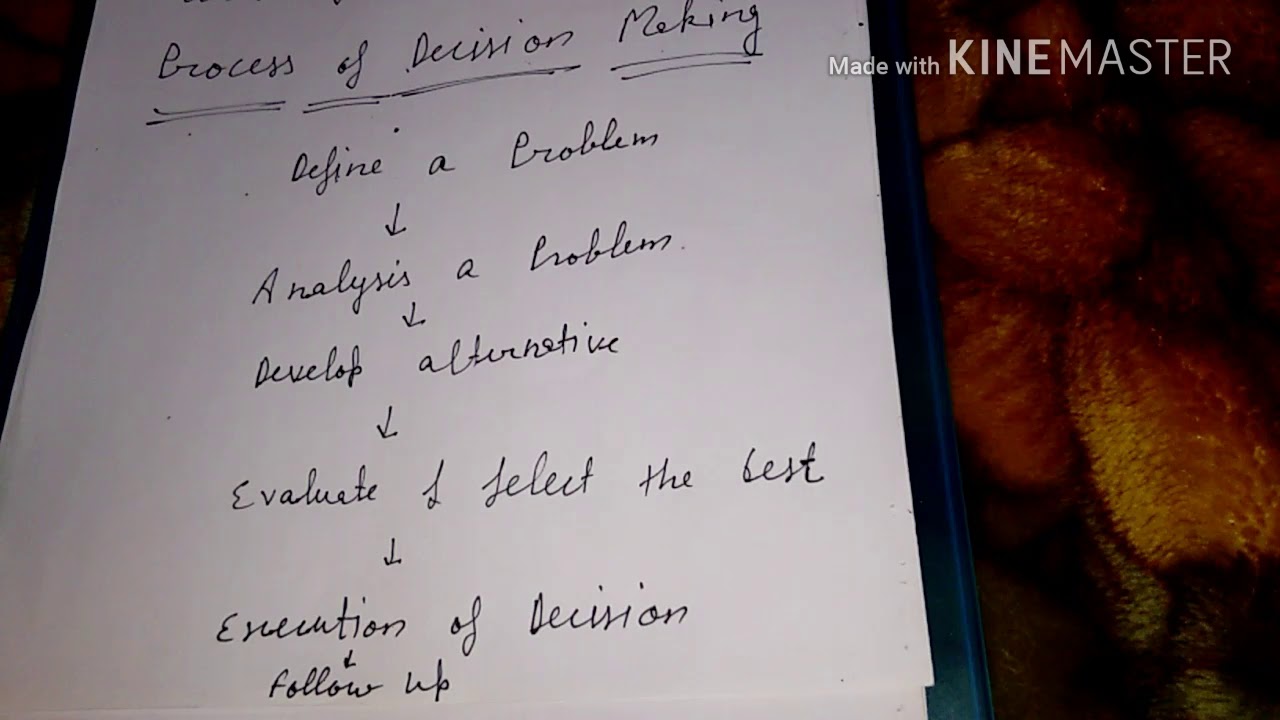 Process of Decision Making
Made with KINEMASTER
Define a Problem
↓
Analysis a Problem.
↓
Develop alternative
↓
Evaluate & Select the best
↓
Execution of Decision
↓
Follow Up